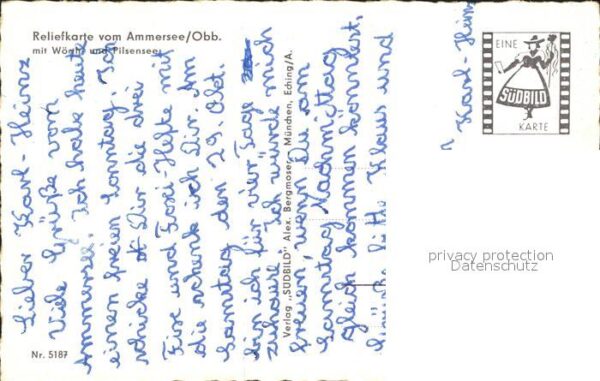 Reliefkarte vom Ammersee/Obb.
mit Wörth- und Pilsensee
Lieber Karl-Heinz
Viele Grüße vom
Ammersee. Ich habe heute
einen freien Sonntag. Ich
schicke Dir die drei
Fixe und Foxi Hefte mit
die schenk ich Dir. Am
Samstag den 29. Okt.
bin ich für vier Tage
zuhause ich würde mich
freuen wenn Du am
Samstag Nachmittag
gleich kommen könntest.
bitte Klaus und
Karl-Heinz
Verlag „SÜDBILD" Alex. Bergmoser, München, Eching/A.
Nr. 5187
EINE
SÜDBILD
KARTE
privacy protection
Datenschutz